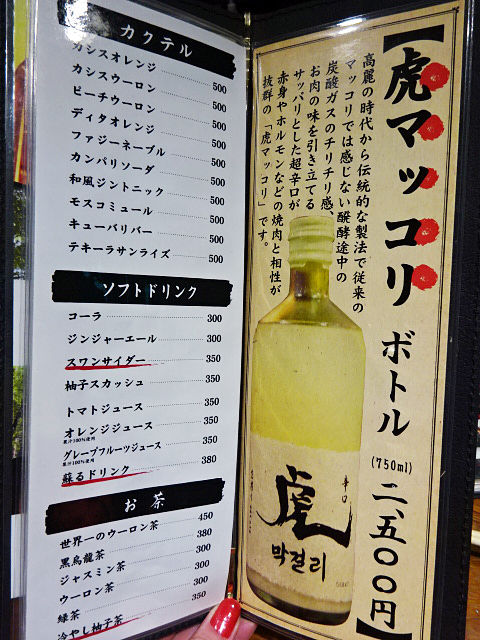 カクテル
カシスオレンジ 500
カシスウーロン 500
ピーチウーロン 500
ディタオレンジ 500
ファジーネーブル 500
カンパリソーダ 500
和風ジントニック 500
モスコミュール 500
キューバリバー 500
テキーラサンライズ 500
ソフトドリンク
コーラ 300
ジンジャーエール 300
スワンサイダー 350
柚子スカッシュ 350
トマトジュース 350
オレンジジュース 350
果汁100%使用
グレープフルーツジュース 350
果汁100%使用
蘇るドリンク 380
お茶
世界一のウーロン茶 450
黒烏龍茶 380
ジャスミン茶 300
ウーロン茶 300
緑茶 300
冷やし柚子茶 350
【虎マッコリ ボトル (750ml) 二、五〇〇円】
高麗の時代から伝統的な製法で従来の
マッコリでは感じない醗酵途中の
炭酸ガスのチリチリ感、
お肉の味を引き立てる
サッパリとした超辛口が
赤身やホルモンなどの焼肉と相性が
抜群の「虎マッコリ」です。
辛口
虎
막걸리